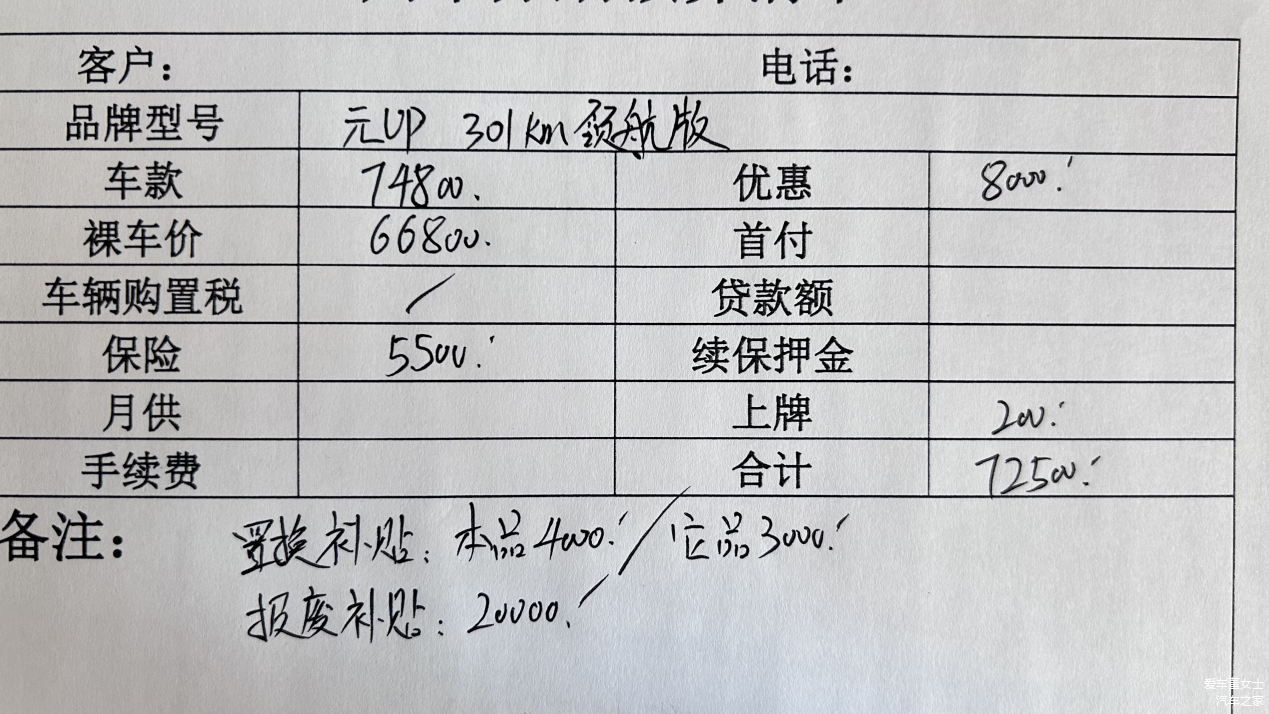 客户： 电话：
品牌型号 元UP 301km领航版
车款 74800. 优惠 8000.
裸车价 66800. 首付
车辆购置税 / 贷款额
保险 5500. 续保押金
月供 上牌 200.
手续费 合计 72500.
备注：
置换补贴：本品4000. / 它品3000.
报废补贴：20000.
爱车董女士
汽车之家